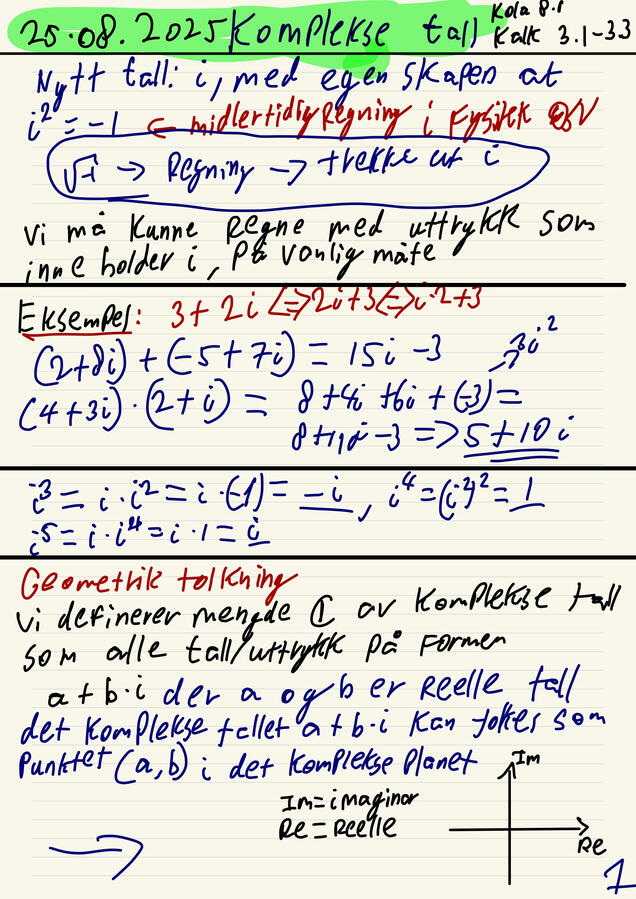 25.08.2025 Komplekse tall
Kola 8.1
Kalk 3.1-3.3
Nytt tall: i, med egenskapen at
i² = -1 ← midlertidig Regning i Fysikk
√-1 → Regning → trekke ut i
Vi må kunne Regne med uttrykk som
inneholder i, på vanlig måte
Eksempel: 3+2i <=> 2i+3 <=> i·2+3
(2+8i) + (-5+7i) = 15i -3
→ 3i²
(4+3i)·(2+i) = 8+4i+6i+(-3) =
8+10i-3 => 5+10i
i³ = i·i² = i·(-1) = -i, i⁴ = (i²)² = 1
i⁵ = i·i⁴ = i·1 = i
Geometrik tolkning
Vi definerer mengde ℂ av Komplekse tall
som alle tall/uttrykk på Formen
a+b·i der a og b er Reelle tall
det Komplekse tallet a+b·i kan tolkes som
Punktet (a,b) i det Komplekse Planet
Im
Im = imaginær
Re = Reelle
Re
1